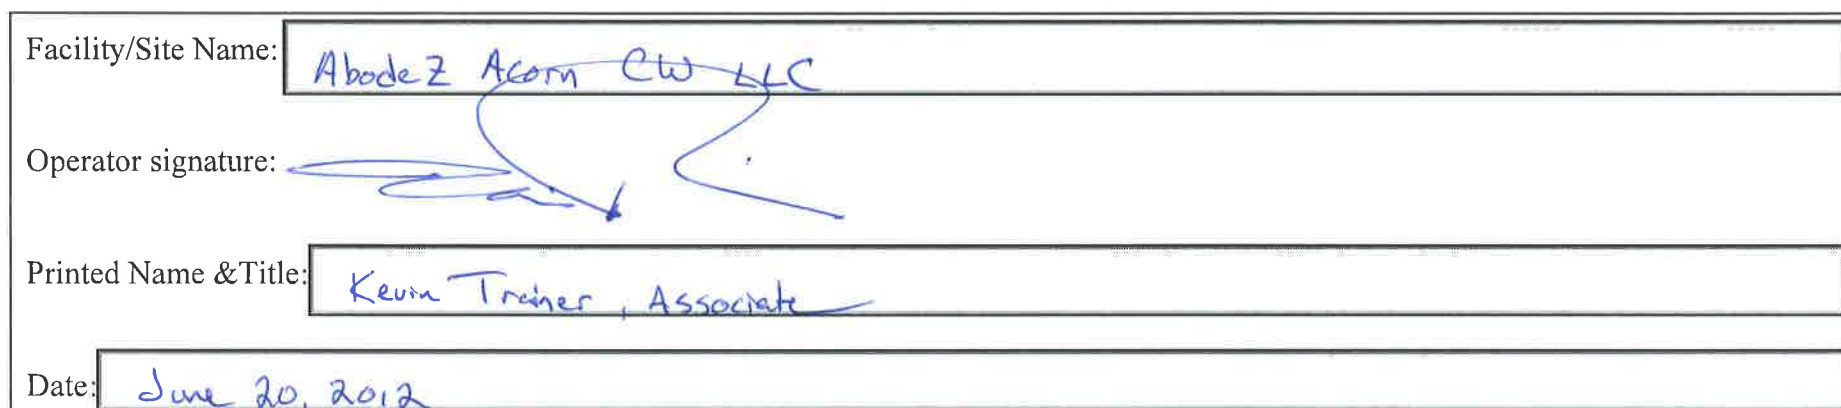 Facility/Site Name: AbodeZ Acorn CW LLC
Operator signature:
Printed Name &Title: Kevin Trainer, Associate
Date: June 20, 2012